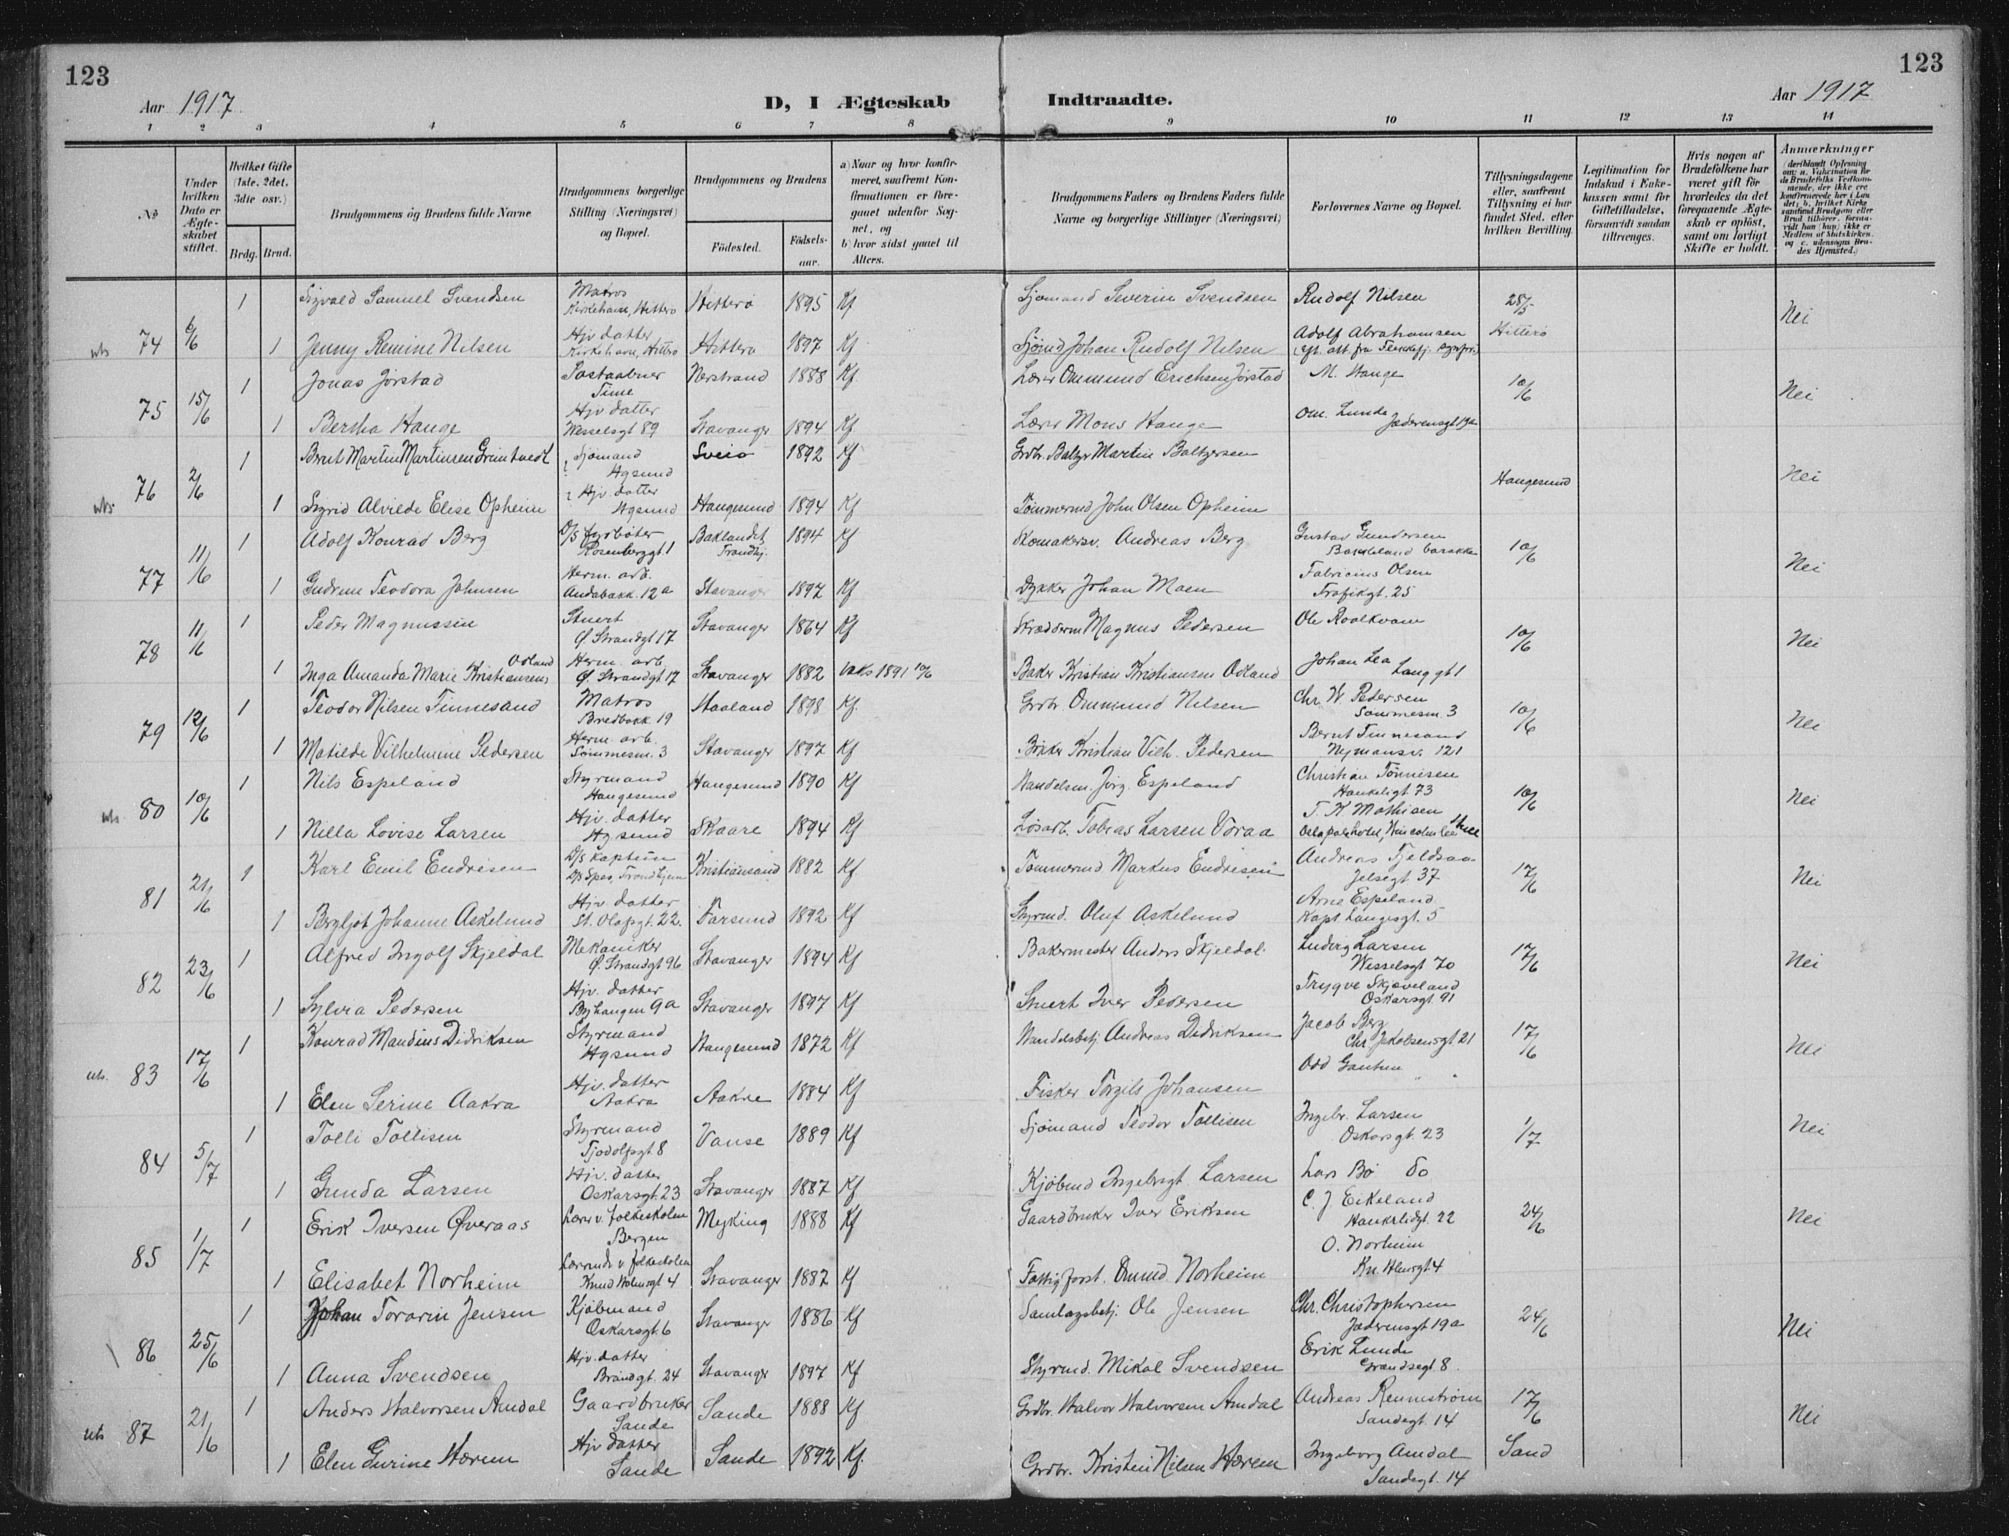 123
123
Aar 1917
D, I Ægteskab Indtraadte.
Aar 1917
1 2 3 4 5 6 7 8 9 10 11 12 13 14
№
Under hvilken Dato er Ægteskabet stiftet.
Hvilket Gifte (1ste, 2det, 3die osv.)
Brdg. Brud.
Brudgommens og Brudens fulde Navne
Brudgommens borgerlige Stilling (Næringsvei) og Bopæl.
Brudgommens og Brudens
Fødested. Fødselsaar.
a) Naar og hvor konfirmeret, saafremt Konfirmationen er foregaaet udenfor Sognet, og
b) hvor sidst gaaet til Alters.
Brudgommens Faders og Brudens Faders fulde Navne og borgerlige Stillinger (Næringsvei)
Forlovernes Navne og Bopæl.
Tillysningsdagene eller, saafremt Tillysning ei har fundet Sted, efter hvilken Bevilling.
Legitimation for Indskud i Enkekassen samt for Giftetilladelse, forsaavidt saadan tiltrænges.
Hvis nogen af Brudefolkene har været gift før hvorledes da det foregaaende Ægteskab er opløst, samt om lovligt Skifte er holdt.
Anmærkninger
Sigvald Samuel Svendsen Matros Kirkehavn, Hitterø Hitterø 1895 Kf Sjømand Severin Svendsen Rudolf Nilsen 28/5
74 6/6 1 Jenny Remine Nilsen Hjv datter Kirkehavn, Hitterø Hitterø 1897 Kf Sjømd Johan Rudolf Nilsen Adolf Abrahamsen Hitterø Nei
1 Jonas Jørstad Nerstrand 1888 Kf Lærer Ommund Erichsen Jørstad M. Hauge 10/6
75 15/6 1 Bertha Hauge Hjv datter Wesselsgt 89 Stavanger 1894 Kf Lærer Mons Hauge Om. Lunde Jæderensgt 19a Nei
1 Bernt Martin Martinsen Grimtvedt Sjømand Hgsund Sveio 1892 Kf Grdbr. Baltzer Martin Baltzersen
76 2/6 1 Sigrid Alvilde Elise Opheim Hjv datter Hgsund Haugesund 1894 Kf Tømmermd John Olsen Opheim Haugesund Nei
1 Adolf Konrad Berg D/S fyrbøter Rosenberggt 1 Baklandet Trondhj. 1894 Kf Skomakersv. Andreas Berg Gustav Gundersen 10/6
77 11/6 1 Gudrun Teodora Johnsen Herm. arb. Andabakk. 12a Stavanger 1897 Kf Dykker Johan Maen Fabricius Olsen Trafikgt. 25 Nei
1 Peder Magnussen Stuert Ø Strandgt 17 Stavanger 1864 Kf Skrædderm Magnus Pedersen Ole Roalkvam 10/6
78 11/6 1 Inga Amanda Marie Kristiansen Odland Herm. arb. Ø. Strandgt 17 Stavanger 1882 Baker Kristian Kristiansen Odland Johan Lea Langgt 1 Nei
1 Teodor Nilsen Tinnesand Matros Bredbakk 19 Haaland 1898 Kf. Grdbr Ommund Nilsen Chr. W Pedersen Sømmesm. 3 10/6
79 12/6 1 Matilde Vilhelmine Pedersen Herm arb. Sømmesm. 3 Stavanger 1897 Kf Bøkker Kristian Vilh. Pedersen Bernt Tinnesand Nymansv. 121 Nei
1 Nils Espeland Styrmand Haugesund Haugesund 1890 Kf Handelsm. Jørg. Espeland Christian Tønnesen Haukeligt 73 10/6
80 10/6 1 Nilla Lovise Larsen Hjv. datter Hgsund Skaare 1894 Kf Løsarb. Tobias Larsen Voraa T. K Mathisen Nei
1 Karl Emil Endresen D/S kaptein Kristiansand 1882 Kf Tømmermd Markus Endresen Andreas Fjeldsaa Jelsegt 37 17/6
81 21/6 1 Bergljot Johanne Askelund Hjv. datter St. Olafsgt. 22. Farsund 1892 Kf Styrmd. Oluf Askelund Arne Espeland Kapt Langesgt. 5 Nei
1 Alfred Ingolf Skjeldal Mekaniker Ø. Strandgt 96 Stavanger 1894 Kf Bakermester Anders Skjeldal. Ludvig Larsen Wesselsgt 70 17/6
82 23/6 1 Sylvia Pedersen Hjv. datter Byhaugen 9a Stavanger 1897 Kf Stuert Iver Pedersen Trygve Skjæveland Oskarsgt. 91 Nei
1 Konrad Mandius Didriksen Styrmand Hgsund Haugesund 1872 Kf Handelsbetj Andreas Didriksen Jacob Berg Chr. Jakobsensgt 21 17/6
83 17/6 1 Elen Serine Aakra Hjv. datter Aakra Aakre 1884 Kf Fisker Torgils Johansen Odd " " Nei
1 Tolli Tollisen Styrmand Tjodolfsgt 8 Vanse 1889 Kf Sjømand Teodor Tollisen Ingebr. Larsen Oskarsgt. 23 1/7
84 5/7 1 Gunda Larsen Hjv. datter Oskarsgt. 23 Stavanger 1887 Kf Kjøbmd Ingebrigt Larsen Lars Bø do Nei
1 Erik Iversen Øveraas Lærer v. folkeskolen Bergen 1888 Kf Gaardbruker Iver Eriksen C. J. Eikeland Haukeligt. 22 24/6
85 1/7 1 Elisabet Norheim Stavanger 1887 Kf Fattigforst. Norheim O. Norheim Nei
1 Johan Torarin Jensen Kjøbmand Oskarsgt. 6 Stavanger 1886 Kf Samlagsbetj. Ole Jensen Chr. Christophersen Jæderensgt 19a 24/6
86 25/6 1 Anna Svendsen Hjv. datter Brandgt. 24 Stavanger 1897 Kf Styrmd. Mikal Svendsen Erik Lunde Nei
1 Anders Halvorsen Amdal Gaardbruker Sande Sande 1888 Kf Grdbr. Halvor Halvorsen Amdal Andreas Rennestrøm Sandsgt. 14 17/6
87 21/6 1 Elen Gurine Hærem Hjv datter Sande Sande 1892 Kf. Grdbr. Kristen Nilsen Hærem Ingeborg Amdal Sandsgt. 14 Sand Nei